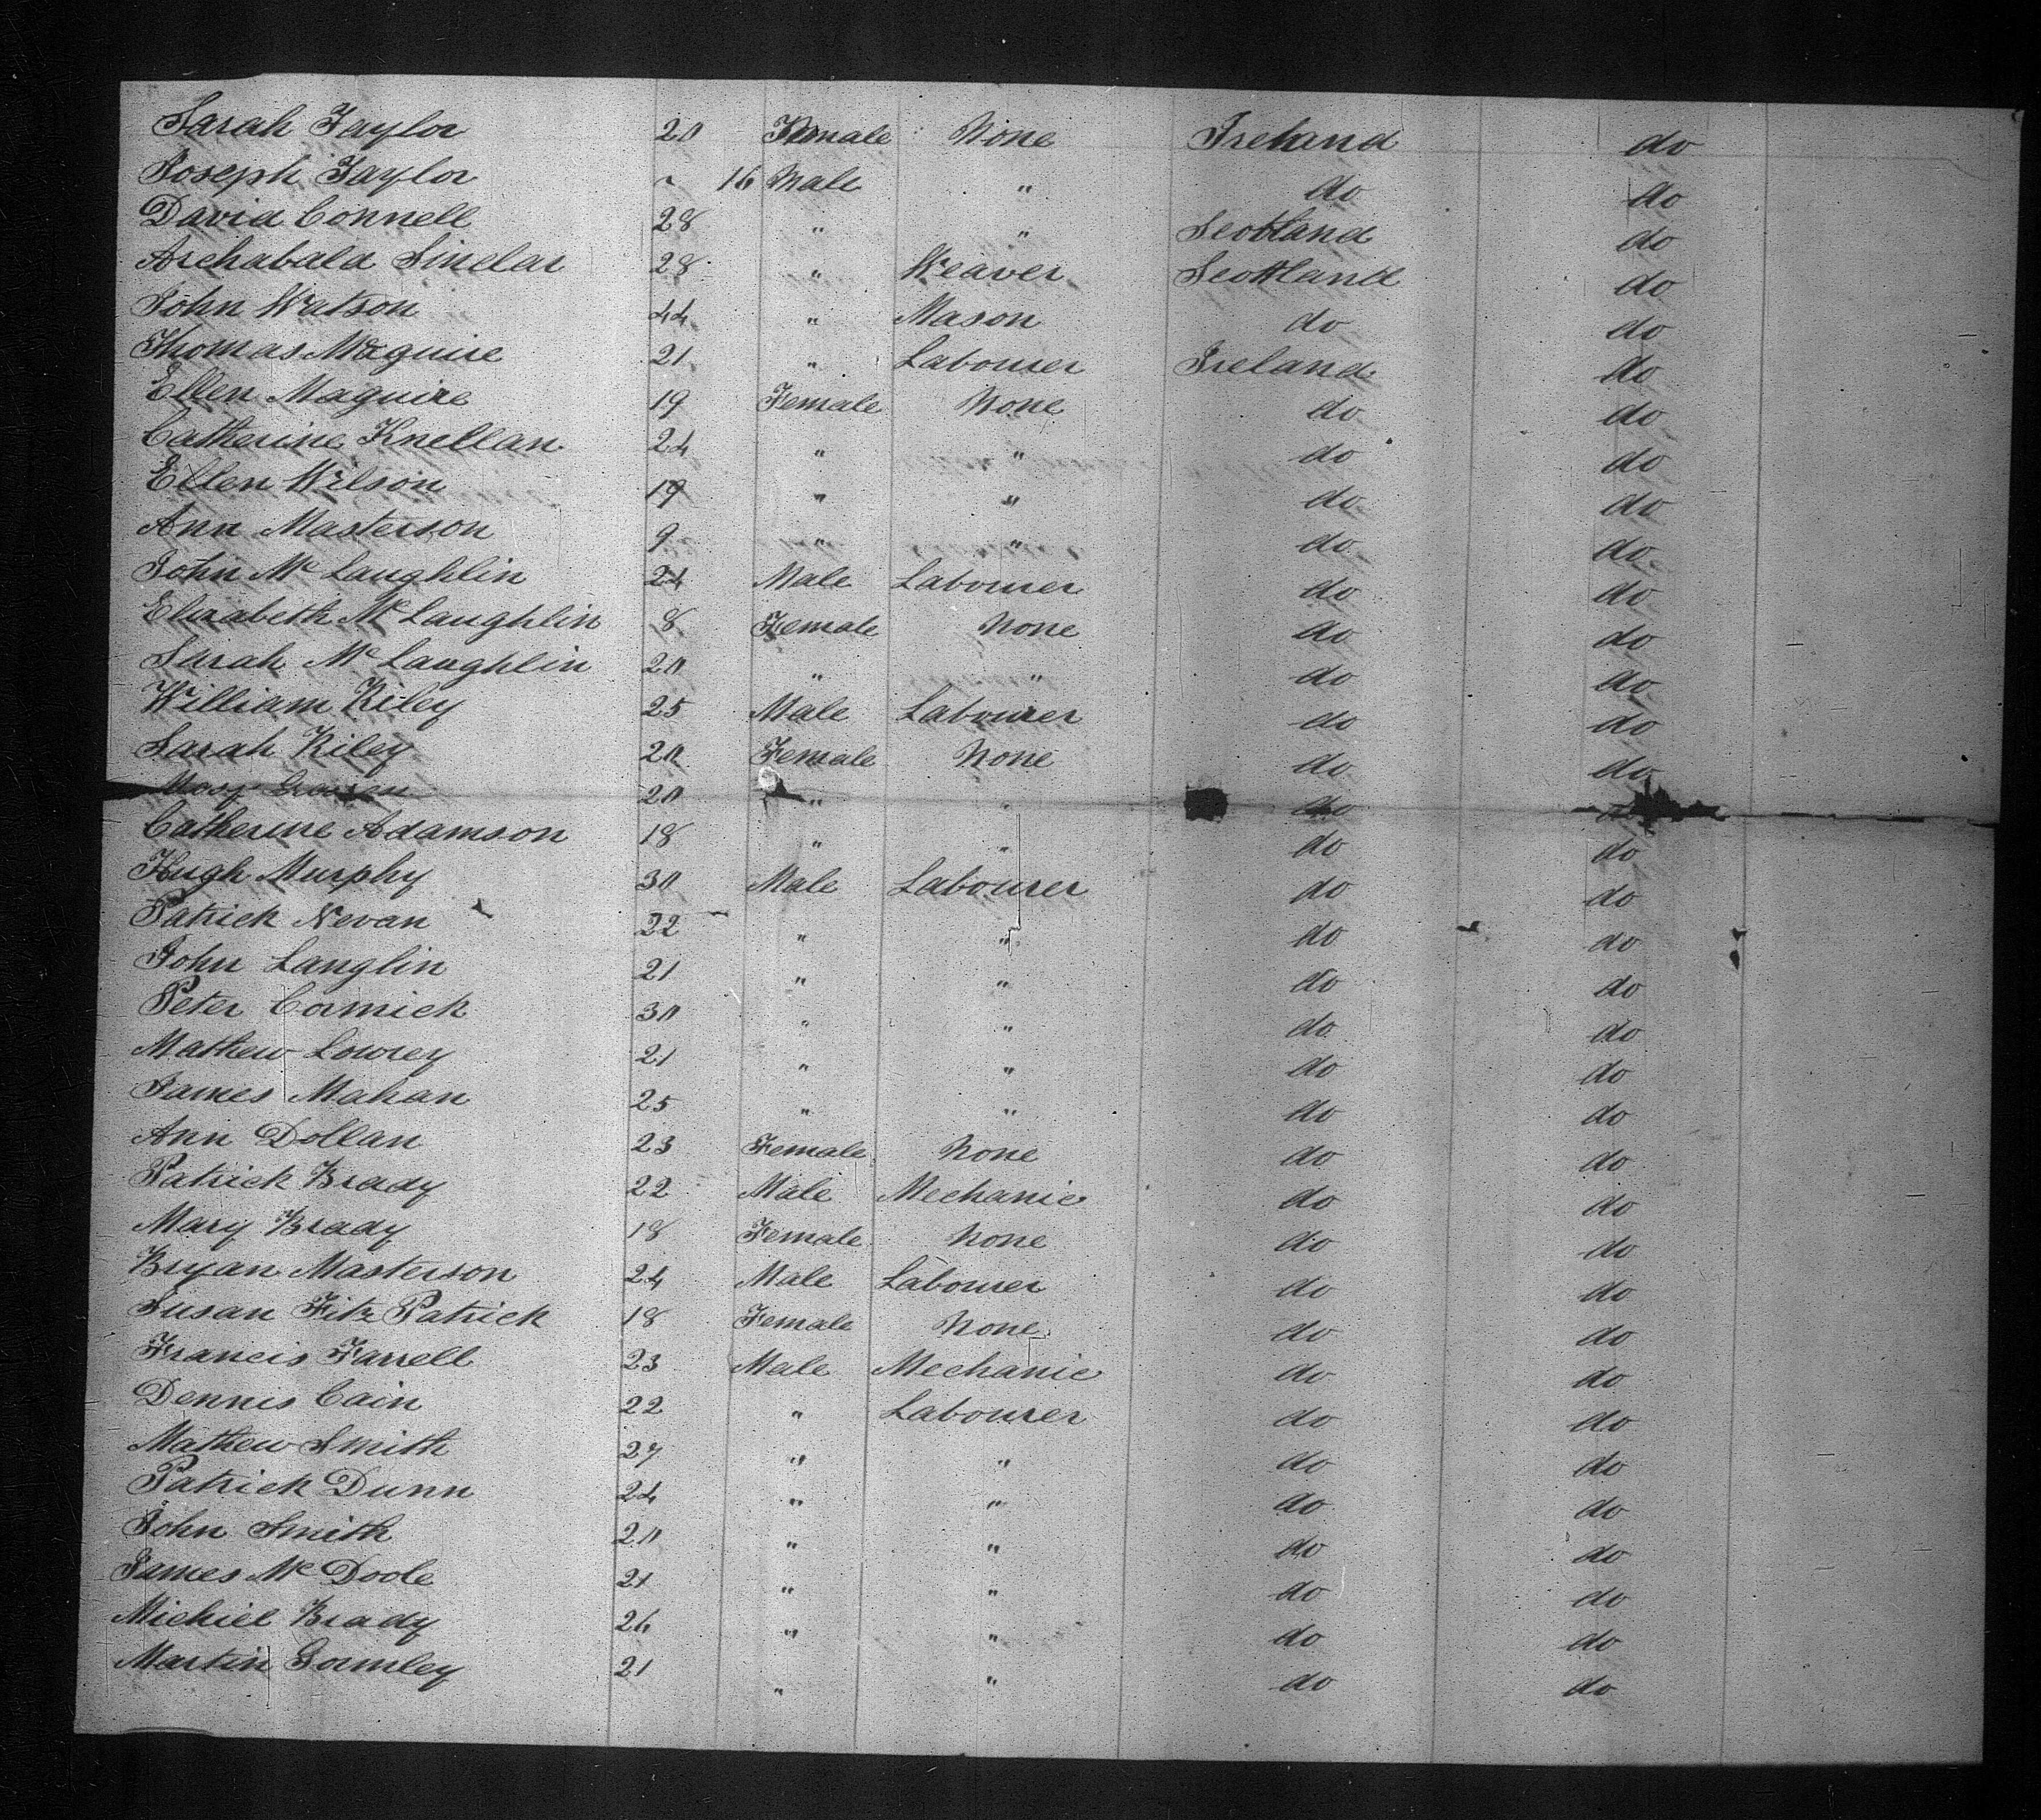 Sarah Taylor 20 Female None Ireland do
Joseph Taylor 16 Male " do do
David Connell 28 " " Scotland do
Archabald Sinclar 28 " Weaver Scottland do
John Watson 44 " Mason do do
Thomas Maguire 21 " Labourer Ireland do
Ellen Maguire 19 Female None do do
Catherine Knellan 24 " " do do
Ellen Wilson 19 " " do do
Ann Masterson 9 " " do do
John Mc Laughlin 24 Male Labourer do do
Elizabeth Mc Laughlin 8 Female None do do
Sarah Mc Laughlin 20 " " do do
William Riley 25 Male Labourer do do
Sarah Riley 20 Female None do do
Mary 20 " " do do
Catherine Adamson 18 " " do do
Hugh Murphy 30 Male Labourer do do
Patrick Nevan 22 " " do do
John Langlin 21 " " do do
Peter Cormick 30 " " do do
Mathew Lowrey 21 " " do do
James Mahan 25 " " do do
Ann Dollan 23 Female None do do
Patrick Brady 22 Male Mechanic do do
Mary Brady 18 Female None do do
Bryan Masterson 24 Male Labourer do do
Susan Fitz Patrick 18 Female None do do
Francis Farrell 23 Male Mechanic do do
Dennis Cain 22 " Labourer do do
Mathew Smith 27 " " do do
Patrick Dunn 24 " " do do
John Smith 20 " " do do
James Mc Doole 21 " " do do
Michiel Brady 26 " " do do
Martin Gormley 21 " " do do